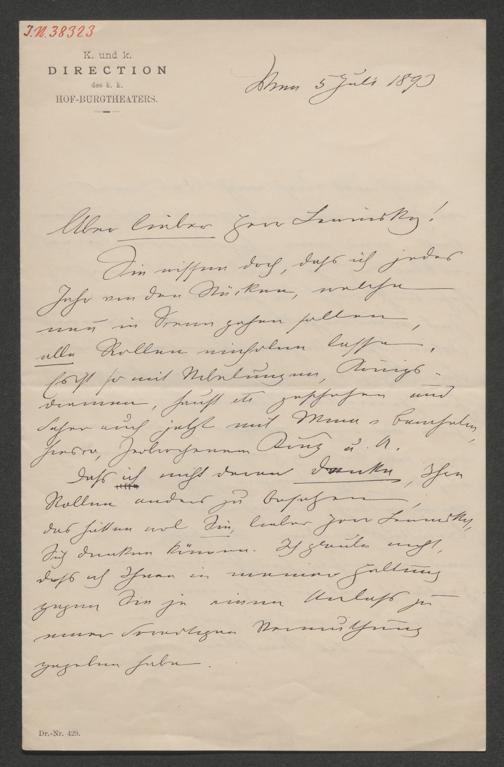 I.N. 38323
K. und k.
DIRECTION
des k. k.
HOF-BURGTHEATERS.
Wien 5 Juli 1890
Aber lieber Herr Lewinsky!
Sie wissen doch, daß ich jedes
Jahr von den Stücken, welche
neu in Scene gehen sollen,
alle Rollen einholen lasse.
Es ist so mit Nibelungen, Königs-
dramen, Faust etc geschehen und
daher auch jetzt mit
Zerbrochenem Krug u. A.
Daß ich nicht daran denke, Ihre
Rollen anders zu besetzen,
das hätten wol Sie, lieber Herr Lewinsky,
Sich denken können. Ich glaube nicht,
daß ich Ihnen in meiner Haltung
gegen Sie je einen Anlaß zu
einer derartigen Vermuthung
gegeben habe.
Dr.-Nr. 429.